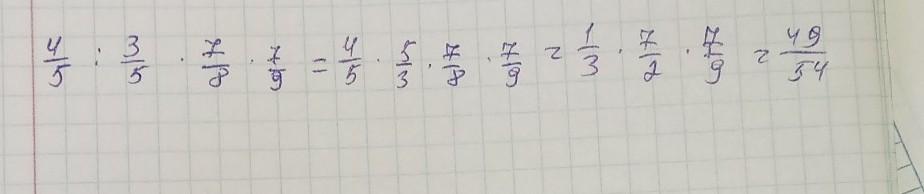 4/5 : 3/5 · 7/8 · 7/9 = 4/5 · 5/3 · 7/8 · 7/9 = 1/3 · 7/2 · 7/9 = 49/54